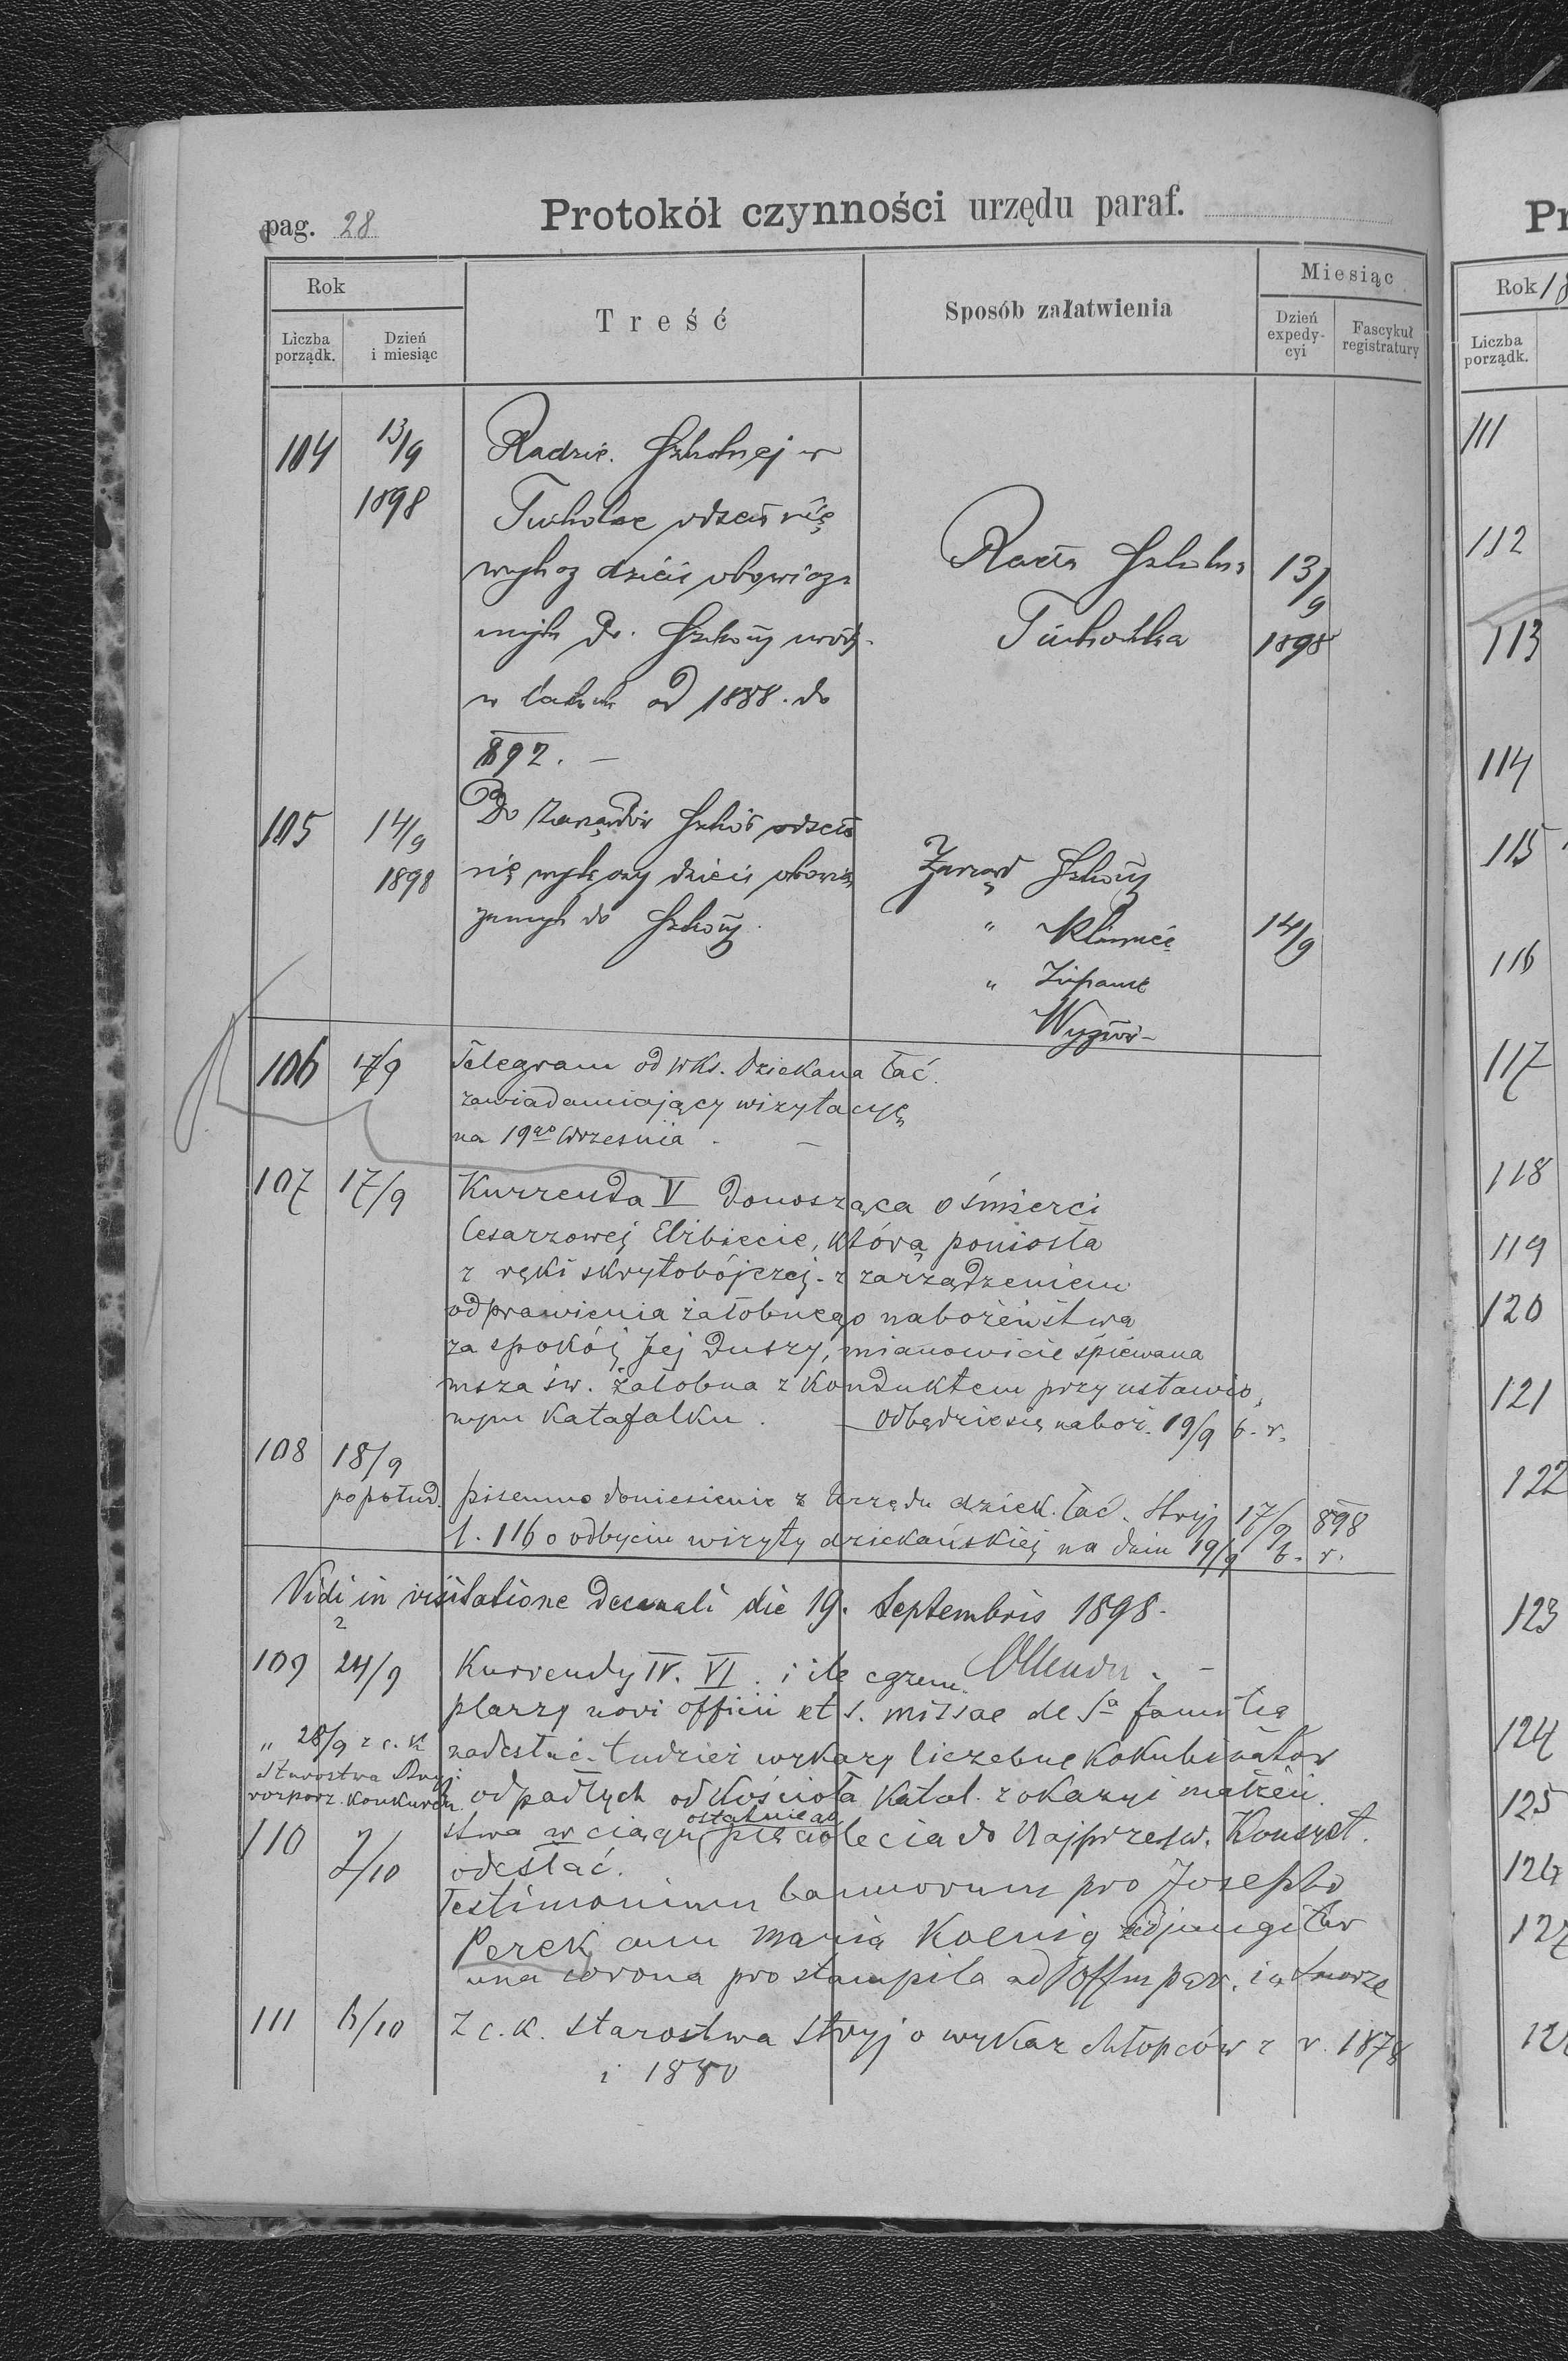 pag. 28
Protokół czynności urzędu paraf.
Rok
Liczba porządk.
Dzień i miesiąc
Treść
Sposób załatwienia
Miesiąc
Dzień expedycyi
Fascykuł registratury
104 13/9 Radzie Szkolnej w
1898 Tucholce
dzieci
do Szkoły
w latach od 1888. do
892. —
Rada Szkolna 13/9
Tucholka 1898
105 14/9 Do Zarządów Szkół
1898 dzieci
do Szkoły.
Zarząd Szkoły
" 14/9
" Żupanie
106 17/9 Telegram od Wks. Dziekana łać.
zawiadamiający wizytacyę
na 19go Wrzesnia. —
107 17/9 Kurrenda V donosząca o śmierci
Cesarzowej Elżbiecie, którą poniosła
z ręki skrytobójczej - z zarządzeniem
odprawienia żałobnego nabożeństwa
za spokój Jej Duszy, mianowicie śpiewana
msza św. żałobna z konduktem przy ustawio,
nym Katafalku. — odbędzie się naboż. 19/9 b. r.
108 18/9
popołud. pisemne doniesienie z Urzędu dziek. łać. Stryj 17/9 898
l. 116 o odbyciu wizyty dziekańskiej na dniu 19/9 b. r.
Vidi in visitatione decanali die 19. Septembris 1898.
109 24/9 Kurrendy IV. VI. i ile egzem.
plarzy novi officii et s. missae de Sa familia
" 28/9 z c. k. nadesłać - tudzież wykazy liczebne
Starostwa Stryj
rozporz. konkuren. odpadłych od Kościoła Katol. z okazyi małżeń.
stwa w ciągu ostatniego pięciolecia do Najprzew. Konsyst.
odesłać.
110 2/10 Testimonium bannorum pro Josepho
Perek cum Maria Koenig adjungitur
una corona pro stampila ad
111 6/10 Z c. k. Starostwa Stryj o wykaz chłopców z r. 1878
i 1880
Pr
Rok 18
Liczba porządk.
111
112
113
114
115
116
117
118
119
120
121
122
123
124
125
126
127